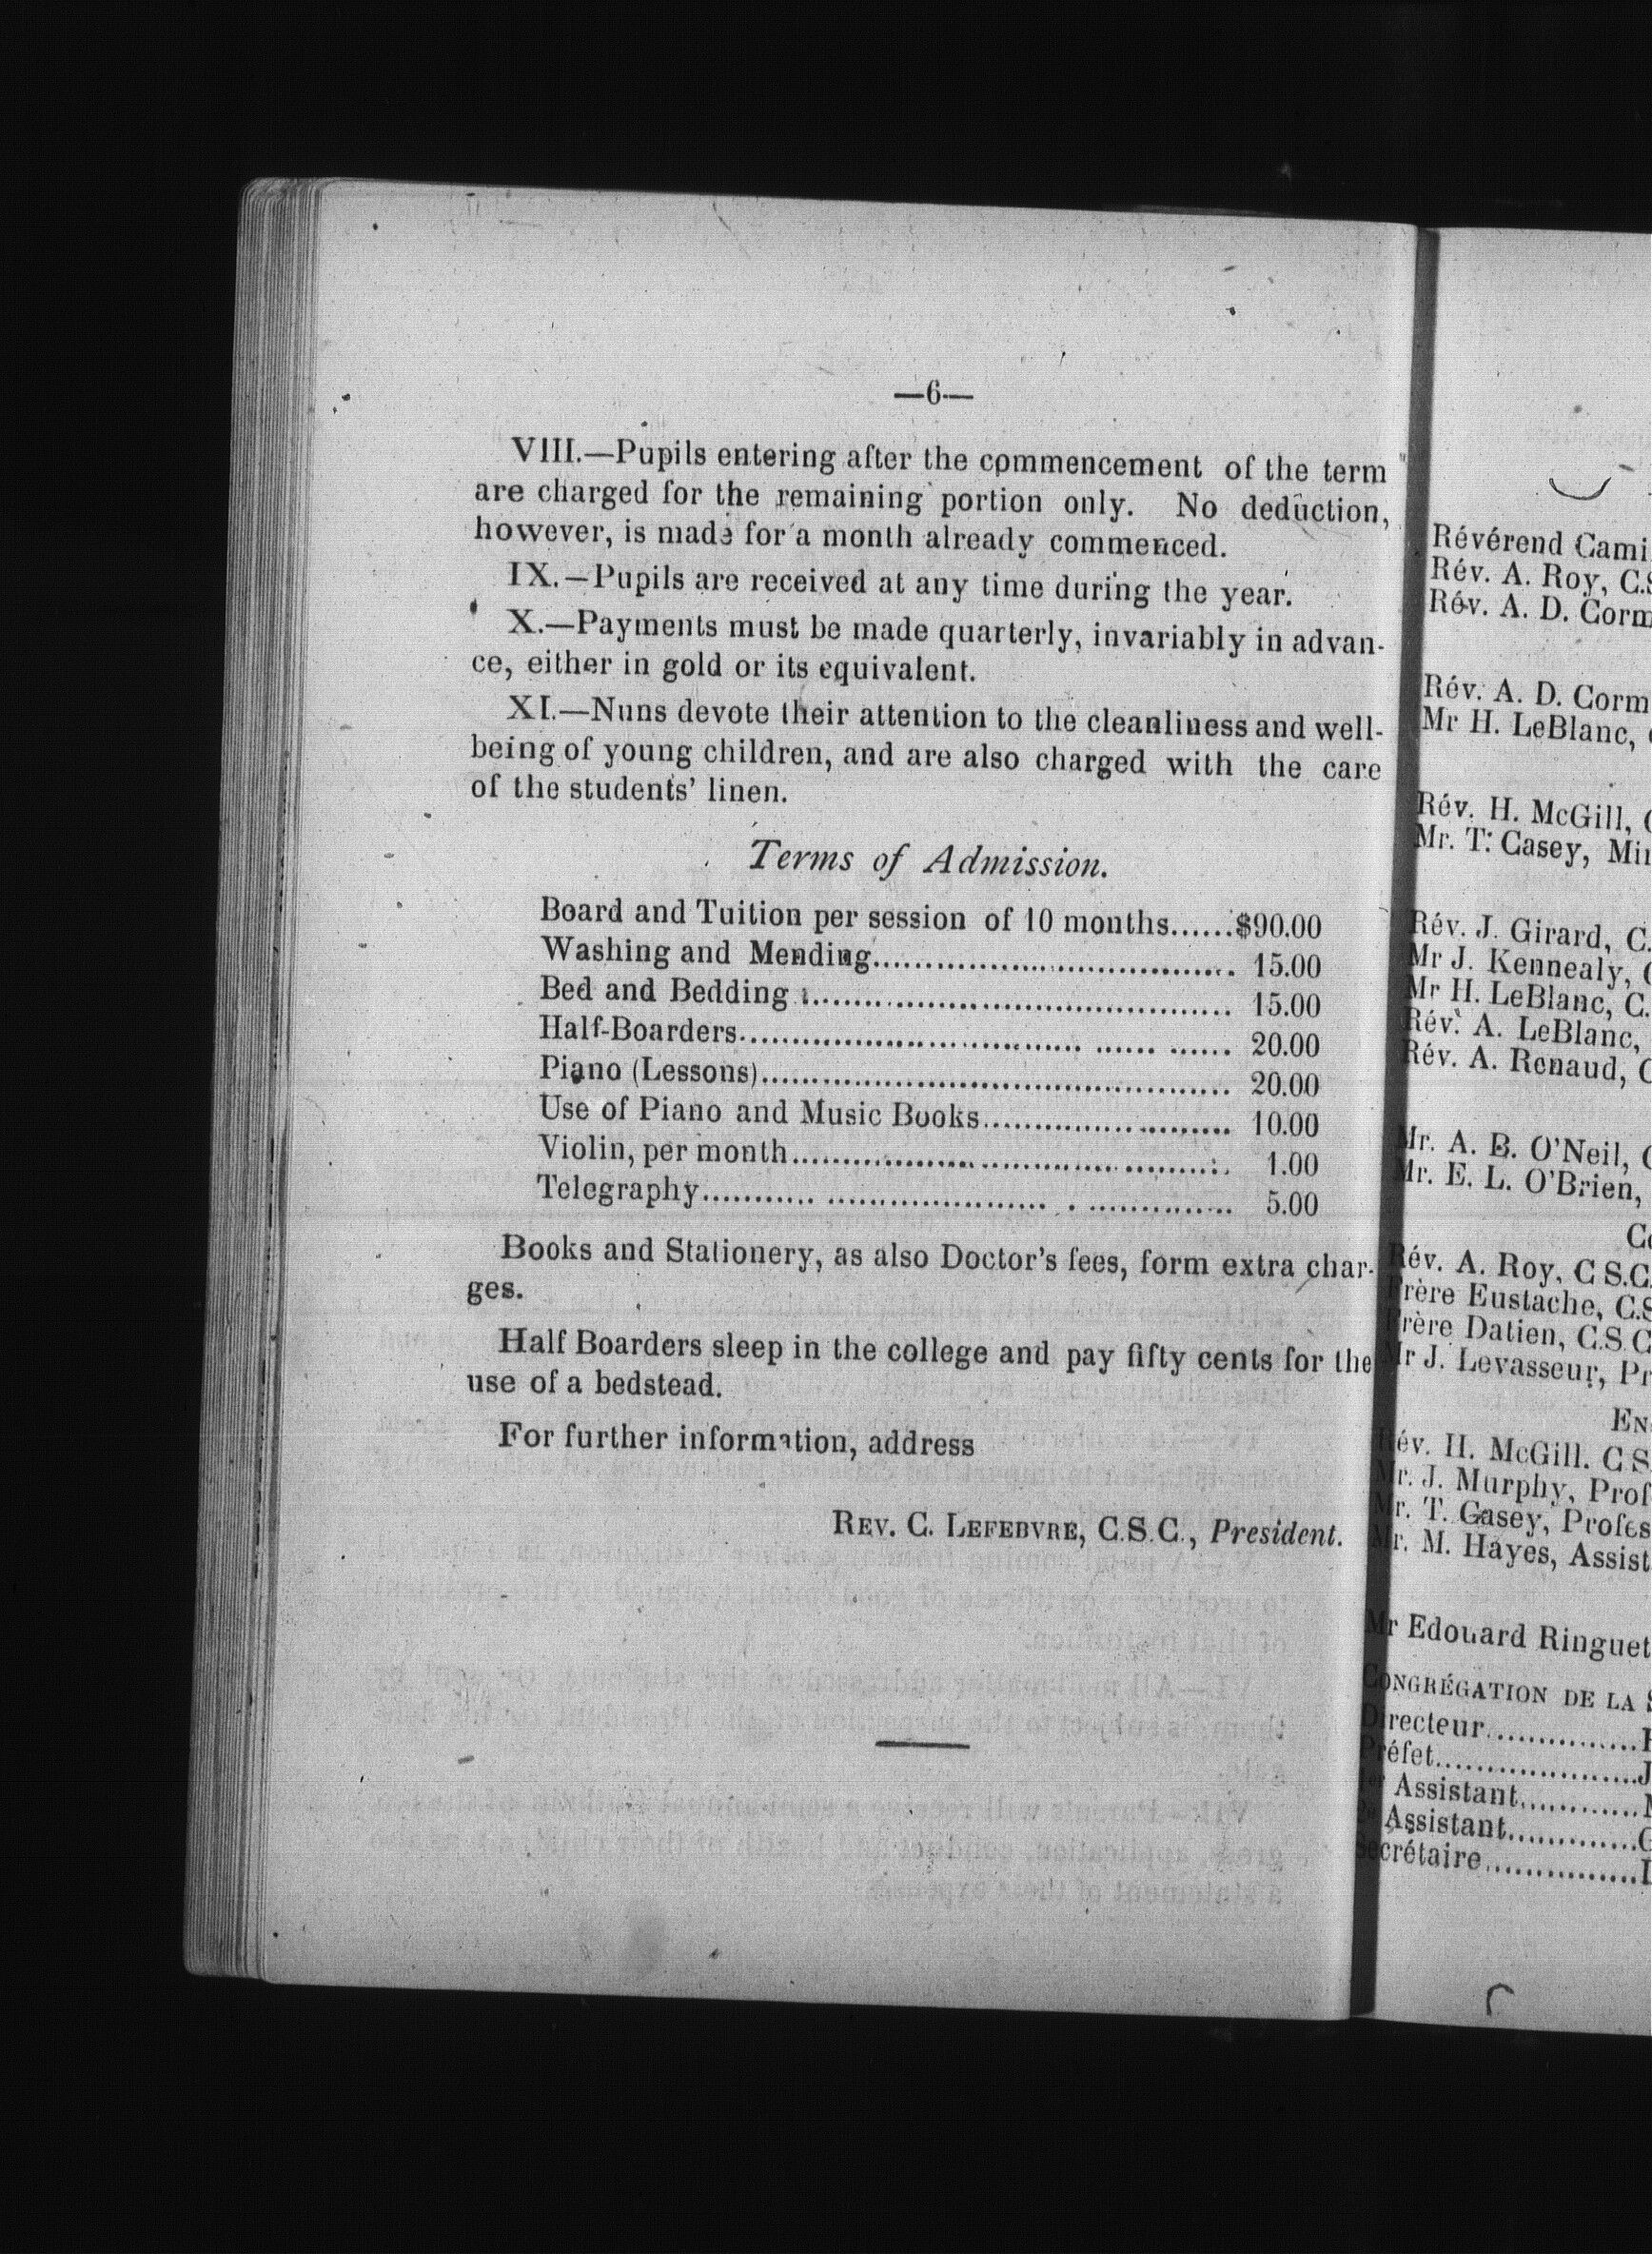 —6—
VIII.—Pupils entering after the commencement of the term
are charged for the remaining portion only. No deduction,
however, is made for a month already commenced.
IX.—Pupils are received at any time during the year.
X.—Payments must be made quarterly, invariably in advan-
ce, either in gold or its equivalent.
XI.—Nuns devote their attention to the cleanliness and well-
being of young children, and are also charged with the care
of the students' linen.
Terms of Admission.
Board and Tuition per session of 10 months......$90.00
Washing and Mending.................................... 15.00
Bed and Bedding .......................................... 15.00
Half-Boarders................................ ...... ...... 20.00
Piano (Lessons)............................................. 20.00
Use of Piano and Music Books........................ 10.00
Violin, per month.......................................... 1.00
Telegraphy........... ...................... . .............. 5.00
Books and Stationery, as also Doctor's fees, form extra char-
ges.
Half Boarders sleep in the college and pay fifty cents for the
use of a bedstead.
For further information, address
REV. C. LEFEBVRE, C.S.C., President.
Révérend Cami
Rév. A. Roy, C.S
Rév. A. D. Corm
Rév. A. D. Corm
Mr H. LeBlanc,
Rév. H. McGill,
Mr. T. Casey, Min
Rév. J. Girard, C.
Mr J. Kennealy,
Mr H. LeBlanc, C.
Rév. A. LeBlanc,
Rév. A. Renaud, C
Mr. A. B. O'Neil,
Mr. E. L. O'Brien,
Co
Rév. A. Roy, C.S.C.
Frère Eustache, C.S
Frère Datien, C.S.C
Mr J. Levasseur, Pr
EN
Rév. H. McGill. C.S
Mr. J. Murphy, Prof
Mr. T. Casey, Profes
Mr. M. Hayes, Assist
Mr Edouard Ringuet
CONGRÉGATION DE LA S
Directeur...............
Préfet.....................J
1er Assistant............
2e Assistant.............
Secrétaire...............